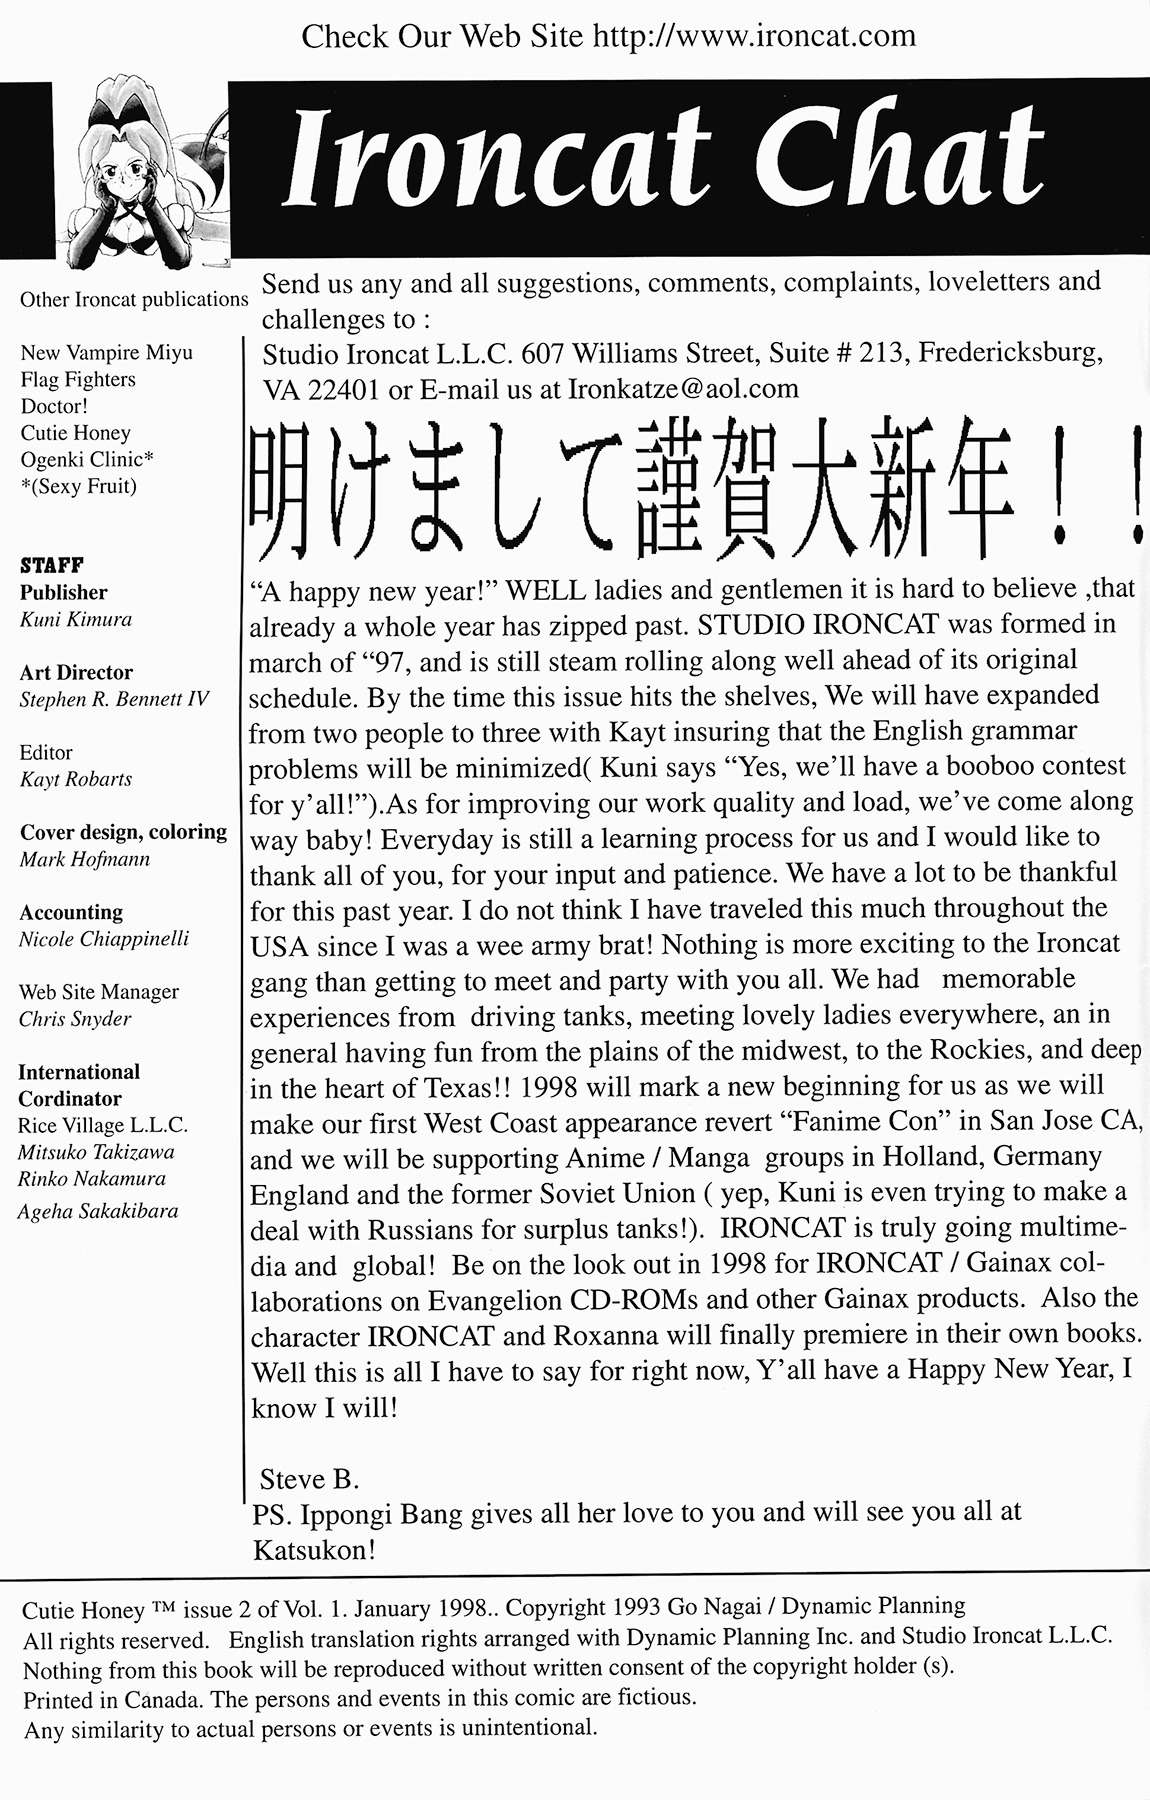 Check Our Web Site http://www.ironcat.com
Ironcat Chat
Other Ironcat publications
New Vampire Miyu
Flag Fighters
Doctor!
Cutie Honey
Ogenki Clinic*
*(Sexy Fruit)
STAFF
Publisher
Kuni Kimura
Art Director
Stephen R. Bennett IV
Editor
Kayt Robarts
Cover design, coloring
Mark Hofmann
Accounting
Nicole Chiappinelli
Web Site Manager
Chris Snyder
International
Cordinator
Rice Village L.L.C.
Mitsuko Takizawa
Rinko Nakamura
Ageha Sakakibara
Send us any and all suggestions, comments, complaints, loveletters and
challenges to :
Studio Ironcat L.L.C. 607 Williams Street, Suite # 213, Fredericksburg,
VA 22401 or E-mail us at Ironkatze@aol.com
明けまして謹賀大新年！！
“A happy new year!” WELL ladies and gentlemen it is hard to believe ,that
already a whole year has zipped past. STUDIO IRONCAT was formed in
march of “97, and is still steam rolling along well ahead of its original
schedule. By the time this issue hits the shelves, We will have expanded
from two people to three with Kayt insuring that the English grammar
problems will be minimized( Kuni says “Yes, we’ll have a booboo contest
for y’all!”).As for improving our work quality and load, we’ve come along
way baby! Everyday is still a learning process for us and I would like to
thank all of you, for your input and patience. We have a lot to be thankful
for this past year. I do not think I have traveled this much throughout the
USA since I was a wee army brat! Nothing is more exciting to the Ironcat
gang than getting to meet and party with you all. We had memorable
experiences from driving tanks, meeting lovely ladies everywhere, an in
general having fun from the plains of the midwest, to the Rockies, and deep
in the heart of Texas!! 1998 will mark a new beginning for us as we will
make our first West Coast appearance revert “Fanime Con” in San Jose CA,
and we will be supporting Anime / Manga groups in Holland, Germany
England and the former Soviet Union ( yep, Kuni is even trying to make a
deal with Russians for surplus tanks!). IRONCAT is truly going multime-
dia and global! Be on the look out in 1998 for IRONCAT / Gainax col-
laborations on Evangelion CD-ROMs and other Gainax products. Also the
character IRONCAT and Roxanna will finally premiere in their own books.
Well this is all I have to say for right now, Y’all have a Happy New Year, I
know I will!
Steve B.
PS. Ippongi Bang gives all her love to you and will see you all at
Katsukon!
Cutie Honey ™ issue 2 of Vol. 1. January 1998.. Copyright 1993 Go Nagai / Dynamic Planning
All rights reserved. English translation rights arranged with Dynamic Planning Inc. and Studio Ironcat L.L.C.
Nothing from this book will be reproduced without written consent of the copyright holder (s).
Printed in Canada. The persons and events in this comic are fictious.
Any similarity to actual persons or events is unintentional.